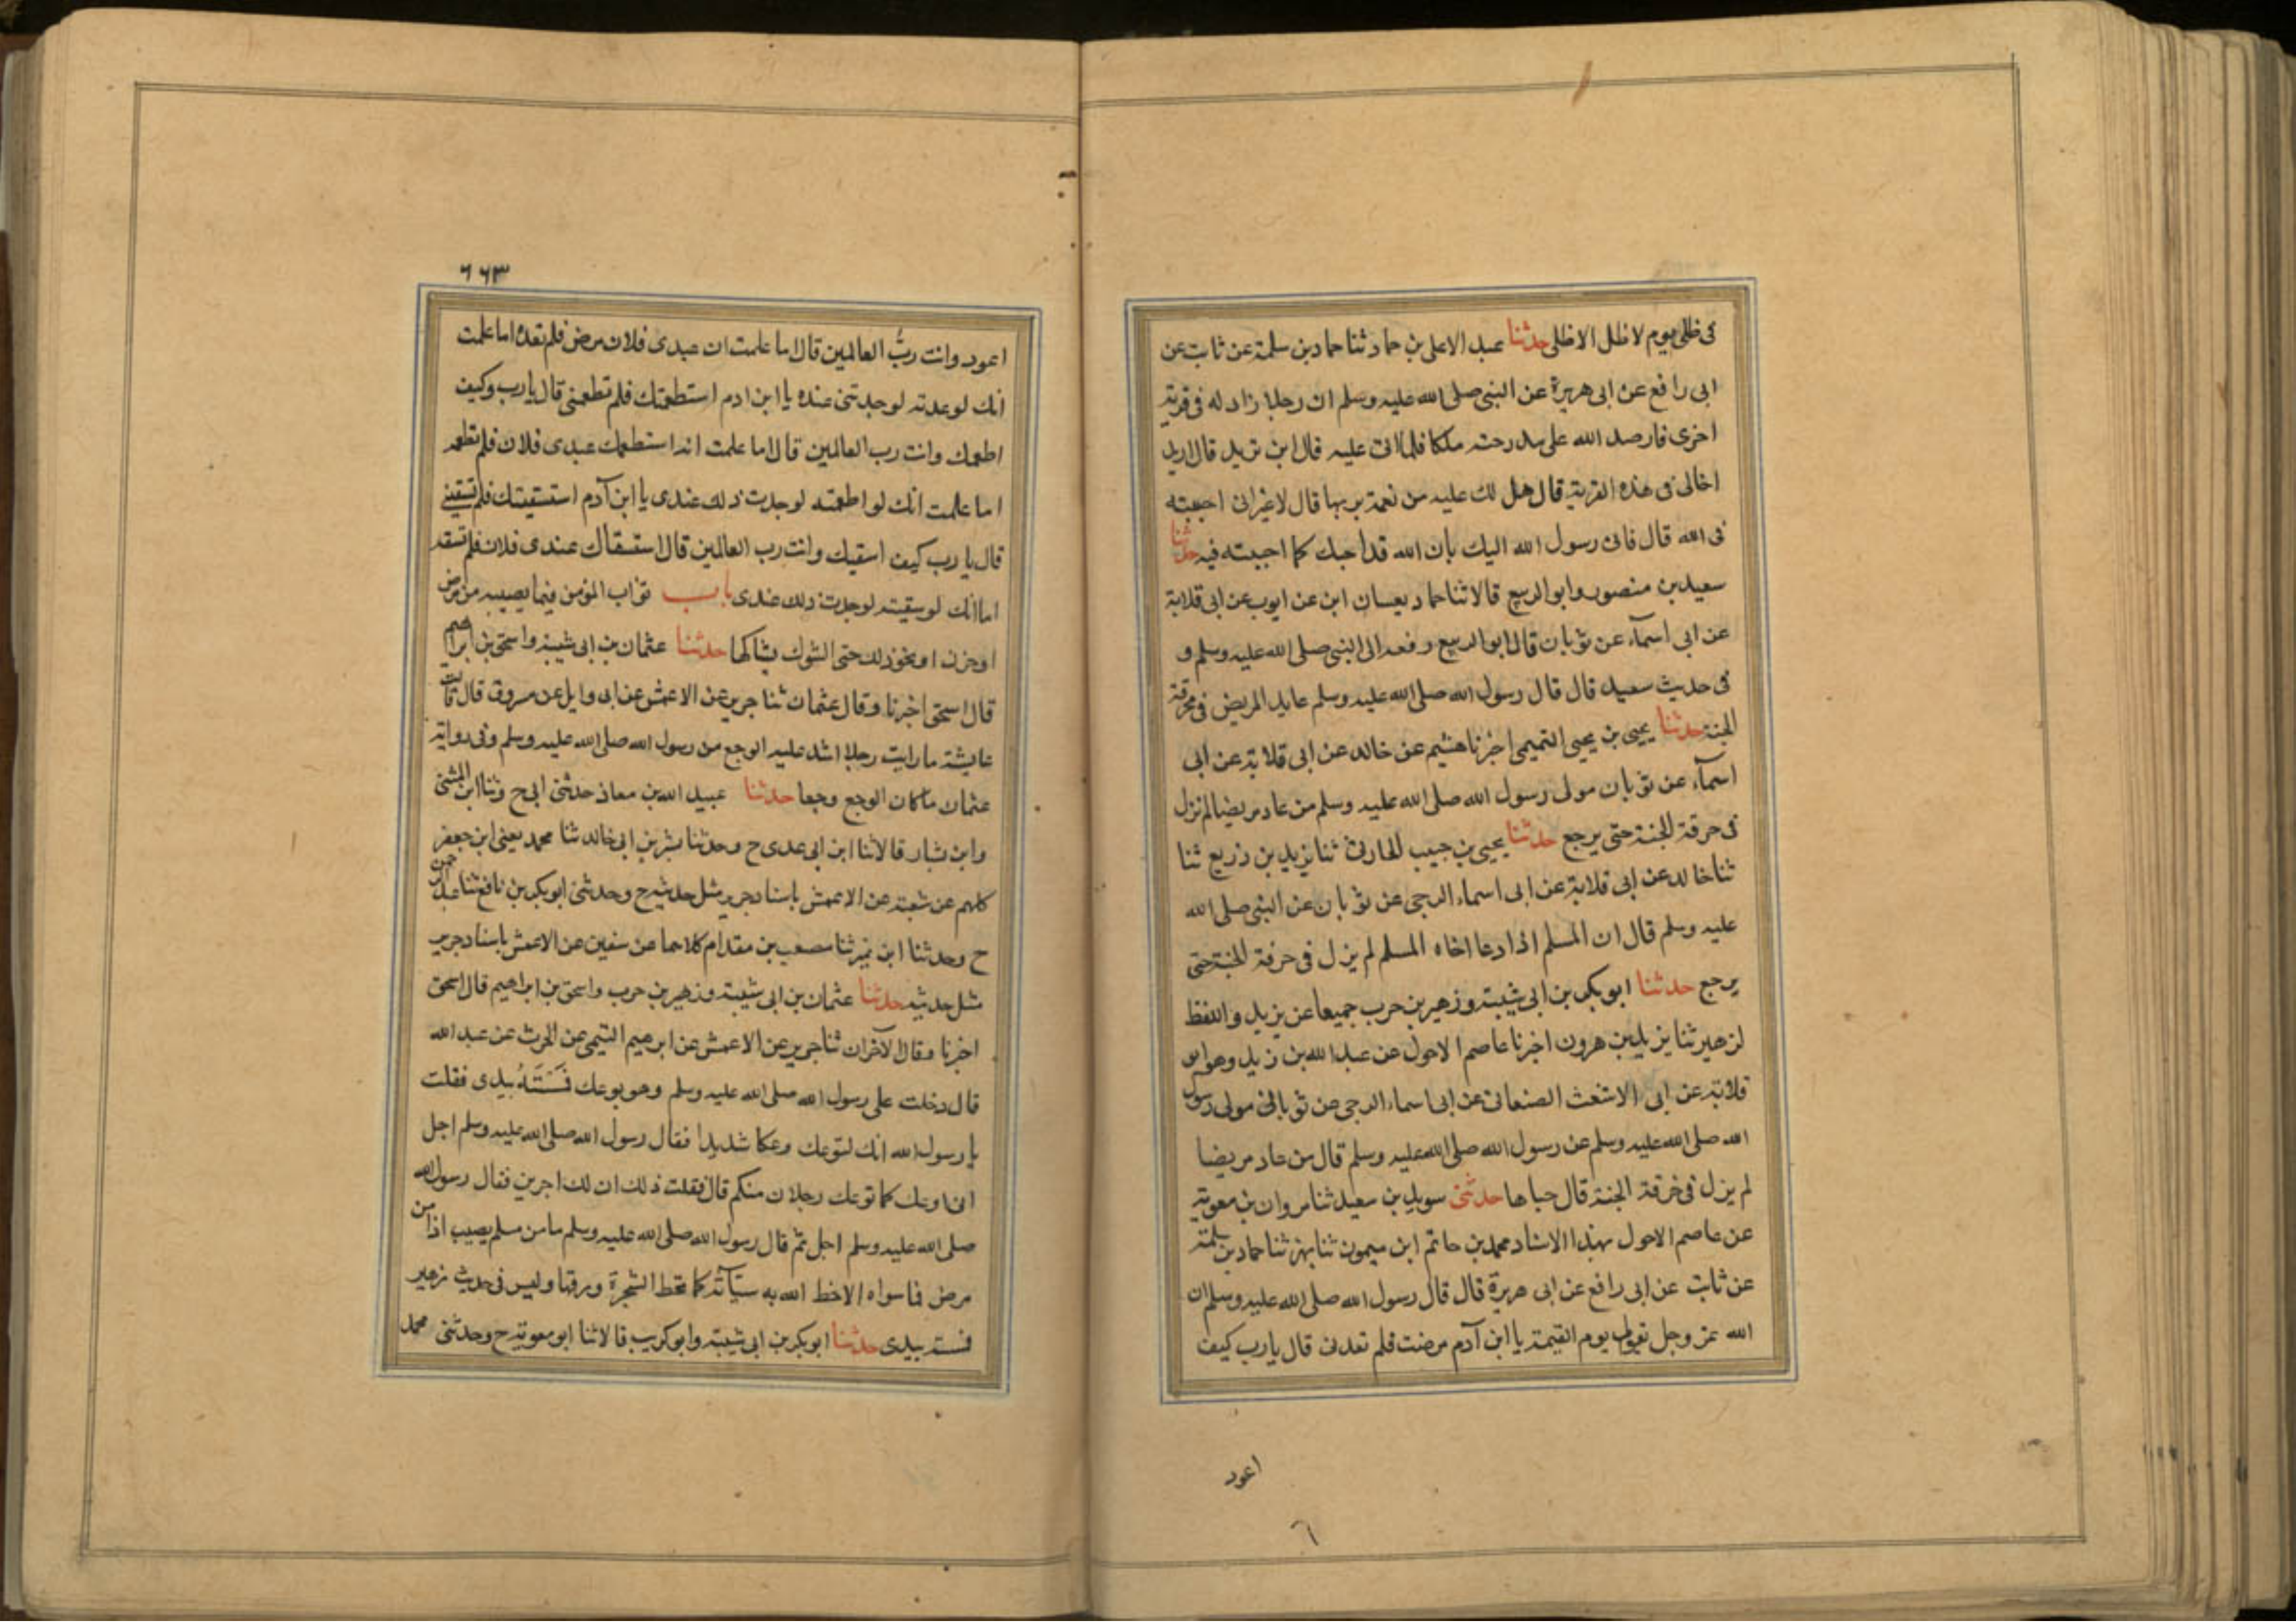 فى ظلى يوم لا ظل الا ظلى حدثنا عبد الاعلى بن حماد ثنا حماد بن سلمة عن ثابت عن
ابى رافع عن ابى هريرة عن النبى صلى الله عليه وسلم ان رجلا زاد له فى قرية
اخرى فارصد الله على مدرجته ملكا فلما اتى عليه قال اين تريد قال اريد
اخا لى فى هذه القرية قال هل لك عليه من نعمة بربها قال لا غير انى احببته
فى الله قال فانى رسول الله اليك بان الله قد احبك كما احببته فيه حدثنا
سعيد بن منصور وابو الربيع قالا ثنا حماد يعنيان ابن عن ايوب عن ابى قلابة
عن ابى اسمآء عن ثوبان قال ابو الربيع رفعه الى النبى صلى الله عليه وسلم و
فى حديث سعيد قال قال رسول الله صلى الله عليه وسلم عايد المريض فى مخرفة
الجنة حدثنا يحيى بن يحيى التميمى اخبرنا هشيم عن خالد عن ابى قلابة عن ابى
اسمآء عن ثوبان مولى رسول الله صلى الله عليه وسلم من عاد مريضا لم نزل
فى خرفة الجنة حتى يرجع حدثنا يحيى بن حبيب الحارثى ثنا يزيد بن زريع ثنا
ثنا خالد عن ابى قلابة عن ابى اسماء الرحبى عن ثوبان عن النبى صلى الله
عليه وسلم قال ان المسلم اذا دعا اخاه المسلم لم يزل فى خرفة الجنة حتى
يرجع حدثنا ابو بكر بن ابى شيبة وزهير بن حرب جميعا عن يزيد واللفظ
لزهير ثنا يزيد بن هرون اخبرنا عاصم الاحول عن عبد الله بن زيد وهو ابو
قلابة عن ابى الاشعث الصنعانى عن ابى اسماء الرحبى عن ثوبان مولى رسول
الله صلى الله عليه وسلم عن رسول الله صلى الله عليه وسلم قال من عاد مريضا
لم يزل فى خرفة الجنة قال جباها حدثنى سويد بن سعيد ثنا مروان بن معوية
عن عاصم الاحول بهذا الاسناد محمد بن حاتم ابن ميمون ثنا بهز ثنا حماد بن سلمة
عن ثابت عن ابى رافع عن ابى هريرة قال قال رسول الله صلى الله عليه وسلم ان
الله عز وجل يقول يوم القيمة يا ابن آدم مرضت فلم تعدنى قال يا رب كيف
اعود
٦٦٣
اعود وانت ربُّ العالمين قال اما علمت ان عبدى فلان مرض فلم تعده اما علمت
انك لو عدته لوجدتنى عنده يا ابن ادم استطعمتك فلم تطعمنى قال يا رب وكيف
اطعمك وانت رب العالمين قال اما علمت انه استطعمك عبدى فلان فلم تطعمه
اما علمت انك لو اطعمته لوجدت ذلك عندى يا ابن آدم استسقيتك فلم تسقينى
قال يا رب كيف اسقيك وانت رب العالمين قال استسقاك عبدى فلان فلم تسقه
اما انك لو سقيته لوجدت ذلك عندى باب ثواب المؤمن فيما يصيبه من مرض
او حزن او نحو ذلك حتى الشوك يشاكها حدثنا عثمان بن ابى شيبة واسحق بن ابراهيم
قال اسحق اخبرنا وقال عثمان ثنا جرير عن الاعمش عن ابى وايل عن مسروق قال قالت
عايشة ما رايت رجلا اشد عليه الوجع من رسول الله صلى الله عليه وسلم وفى رواية
عثمان ما كان الوجع وجعا حدثنا عبيد الله بن معاذ حدثنى ابى ح وثنا ابن المثنى
وابن بشار قالا ثنا ابن ابى عدى ح وحدثنا بشر بن ابى خالد ثنا محمد يعنى ابن جعفر
كلهم عن شعبة عن الاعمش باسناد جرير مثل حديثه ح وحدثنى ابو بكر بن نافع ثنا عبد الرحمن
ح وحدثنا ابن نمير ثنا مصعب بن مقدام كلاهما عن سفين عن الاعمش باسناد جرير
مثل حديثه حدثنا عثمان بن ابى شيبة وزهير بن حرب واسحق بن ابراهيم قال اسحق
اخبرنا وقال الآخران ثنا جرير عن الاعمش عن ابرهيم التيمى عن الحرث عن عبد الله
قال دخلت على رسول الله صلى الله عليه وسلم وهو يوعك فَسَسْتَهُ بيدى فقلت
يا رسول الله انك لتوعك وعكا شديدا فقال رسول الله صلى الله عليه وسلم اجل
انى اوعك كما توعك رجلان منكم قال فقلت ذلك ان لك اجرين فقال رسول الله
صلى الله عليه وسلم اجل ثم قال رسول الله صلى الله عليه وسلم ما من مسلم يصيب اذا من
مرض فما سواه الا حط الله به سيّآته كما تحط الشجرة ورقها وليس فى حديث زهير
فمسته بيدى حدثنا ابو بكر بن ابى شيبة وابو كريب قالا ثنا ابو معوية ح وحدثنى محمد